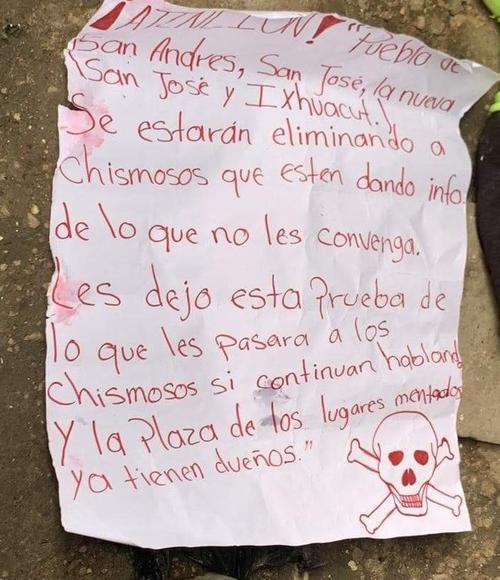 ¡ATENCION! "Pueblo de
San Andres, San José, la nueva
(San José y Ixhuacut.)
Se estarán eliminando a
Chismosos que esten dando info.
de lo que no les convenga.
Les dejo esta Prueba de
lo que les pasara a los
Chismosos si continuan habland
Y la Plaza de los lugares mentados
ya tienen dueños."